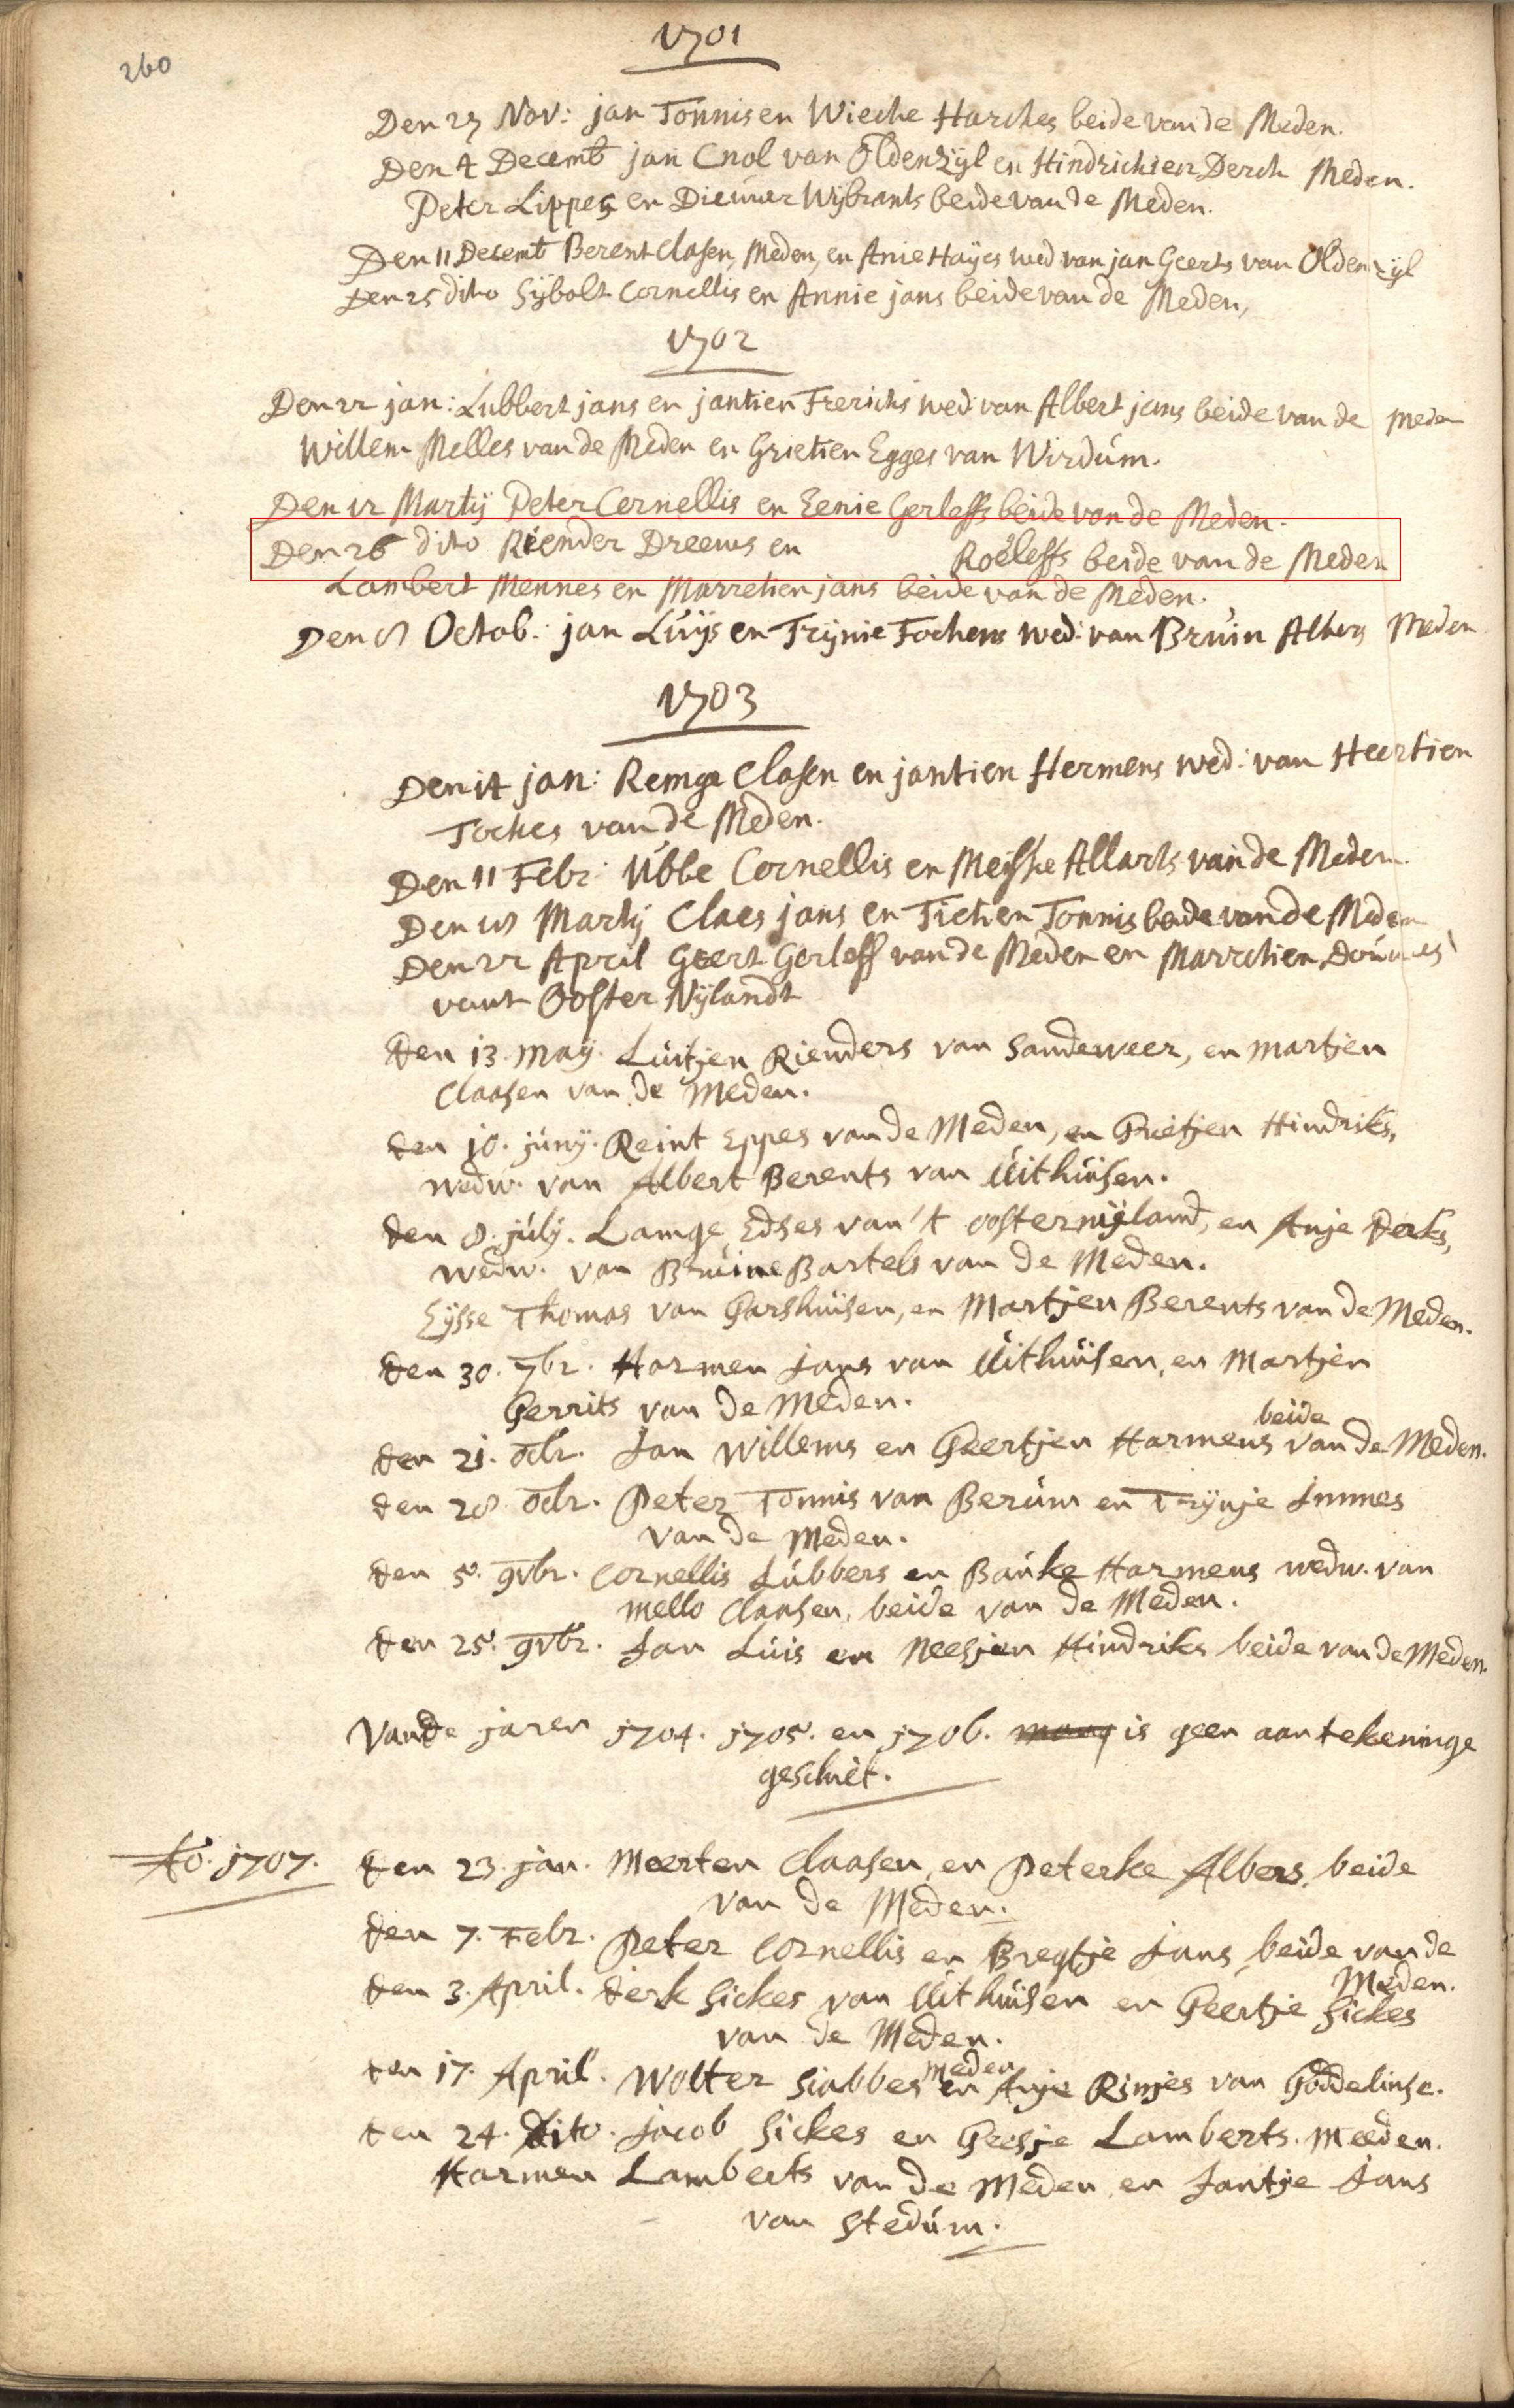 260
1701
Den 27 Nov: jan Tonnis en Wieche Harches beide van de Meden.
Den 4 Decemb jan Cnol van Oldenzijl en Hindrichien Derch Meden.
Peter Lippes en Diewer Wijbrants beide van de Meden.
Den 11 Decemb Berent Clasen, Meden, en Anie Hayes wed van jan Geerts van Oldenzijl
Den 25 dito Sijbolt Cornellis en Annie jans beide van de Meden,
1702
Den 22 jan: Lubbert jans en jantien Frerichs wed: van Albert jans beide van de Meden
Willem Melles van de Meden en Grietien Egges van Wirdum.
Den 12 Martij Peter Cornellis en Eenie Gerleffs beide van de Meden.
Den 26 dito Riender Dreews en Roeleffs beide van de Meden
Lambert Mennes en Marretien jans beide van de Meden.
Den 8 Octob: jan Luijs en Trijnie Fochens wed: van Bruin Albers Meden
1703
Den 14 jan: Remge Clasen en jantien Hermens wed: van Heertien
Foches van de Meden.
Den 11 Febr: Ubbe Cornellis en Meiske Allarts van de Meden.
Den 18 Martij Claes jans en Tietien Tonnis beide van de Meden
Den 22 April Geert Gerleff van de Meden en Marretien Douwes
vant Ooster Nijlandt
den 13. Maij. Luitjen Rienders van Sandeweer, en Martjen
Claasen van de Meden.
den 10. junij. Reint Eppes van de Meden, en Grietjen Hindriks,
wedw. van Albert Berents van Uithuisen.
den 8. julij. Lamge Edses van 't oosternijland, en Anje Derks,
wedw. van Bruine Bartels van de Meden.
Eijsse Thomas van Garshuisen, en Martjen Berents van de Meden.
den 30. 7br. Harmen Jans van Uithuisen, en Martjen
Gerrits van de Meden.
beide
den 21. 8br. Jan Willems en Geertjen Harmens van de Meden.
den 28. 8br. Peter Tonnis van Berum en Trijnje Immes
van de Meden.
den 5. 9vbr. Cornellis Lubbers en Bauke Harmens wedw. van
Mello Claasen, beide van de Meden.
den 25. 9vbr. Jan Luis en Neesjen Hindriks beide van de Meden.
Vande jaren 1704. 1705. en 1706. is geen aantekeninge
geschiet.
Ao. 1707. den 23. jan. Meerten Claasen, en Peterke Albers, beide
van de Meden.
den 7. Febr. Peter Cornellis en Bregtje Jans, beide van de
Meden.
den 3. April. derk Sickes van Uithuisen en Geertje Sickes
van de Meden.
meden
den 17. April. Wolter Siabbes en Anje Rinjes van Goddelinse.
den 24. dito. Jacob Sickes en Geesje Lamberts. Meeden.
Harmen Lamberts van de Meden en Jantje Jans
van Stedum.